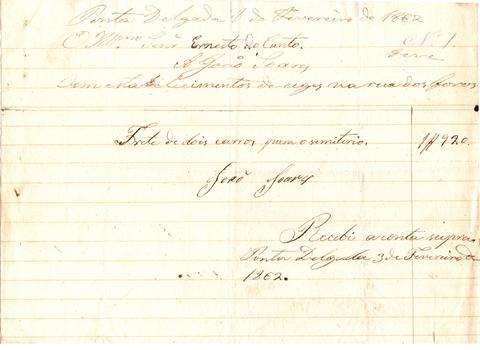 Ponta Delgada 1 de Fevereiro de 1862
O Illmo Senr Ernesto do Canto. Nº 1.
A João Soares Deve
Com Estabelecimentos de seges na rua dos
Frete de dois carros para o semiterio. 1$920.
João Soares
Recebi a conta supra
Ponta Delgada 3 de Fevereiro de
1862.